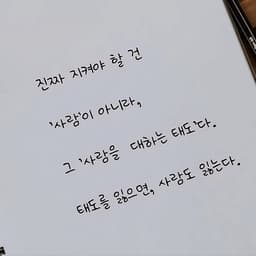 진짜 지켜야 할 건
'사랑'이 아니라,
그 '사랑을 대하는 태도'다.
태도를 잃으면, 사랑도 잃는다.